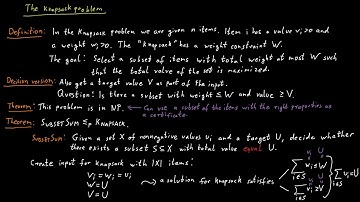 The Knapsack problem
Definition: In the Knapsack problem we are given n items. Item i has a value vᵢ>0 and
a weight wᵢ>0. The "knapsack" has a weight constraint W.
The goal: Select a subset of items with total weight at most W such
that the total value of the set is maximized.
Decision version: Also get a target value V as part of the input.
Question: Is there a subset with weight ≤ W and value ≥ V.
Theorem: This problem is in NP. ← Can use a subset of the items with the right properties as
a certificate.
Theorem: SUBSETSUM ≤ₚ KNAPSACK.
SUBSETSUM: Given a set X of nonnegative values uᵢ and a target U, decide whether
there exists a subset S⊆X with total value equal U.
Create input for knapsack with |X| items:
vᵢ = wᵢ = uᵢ
W = U
V = U
→ a solution for knapsack satisfies
∑ i∈S wᵢ ≤ W
∑ i∈S vᵢ ≥ V
uᵢ U
uᵢ U
∑ i∈S uᵢ = U